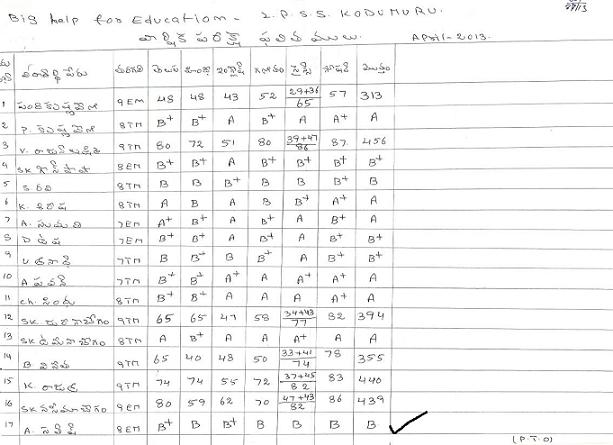 Big help for Education - Z.P.S.S. KODUMURU.
వార్షిక పరీక్ష ఫలితములు. APril-2013.
తరగతి తెలుగు హిందీ ఇంగ్లీష్ గణితం సైన్స్ సోషల్ మొత్తం
1 9EM 48 48 43 52 29+36/65 57 313
2 P. కృష్ణవేణి 8TM B+ B+ A B+ A+ A+ A
3 9TM 80 72 51 80 39+47/86 87 456
4 8EM B+ B+ A B+ B+ B+ B+
5 8TM B B B+ B B B+ B
6 K. శిరీష 8TM A B A B B+ A+ A
7 A. సుమతి 7EM A+ B+ A B+ A B+ A
8 D దివ్య 7EM B+ B+ A B+ A B+ B+
9 7TM B B+ B B+ A B+ B+
10 A 7TM B+ B+ A+ A A+ A+ A+
11 Ch. సింధు 8TM B+ B+ A A A A+ A
12 SK 9TM 65 65 47 58 34+43/77 82 394
13 SK 8TM A B+ A A A+ A A
14 B 9TM 65 40 48 50 33+41/74 78 355
15 K. 9TM 74 74 55 72 37+45/82 83 440
16 SK 9EM 80 59 62 70 47+43/82 86 439
17 A. 8EM B+ B B+ B B B B
(P.T.O)